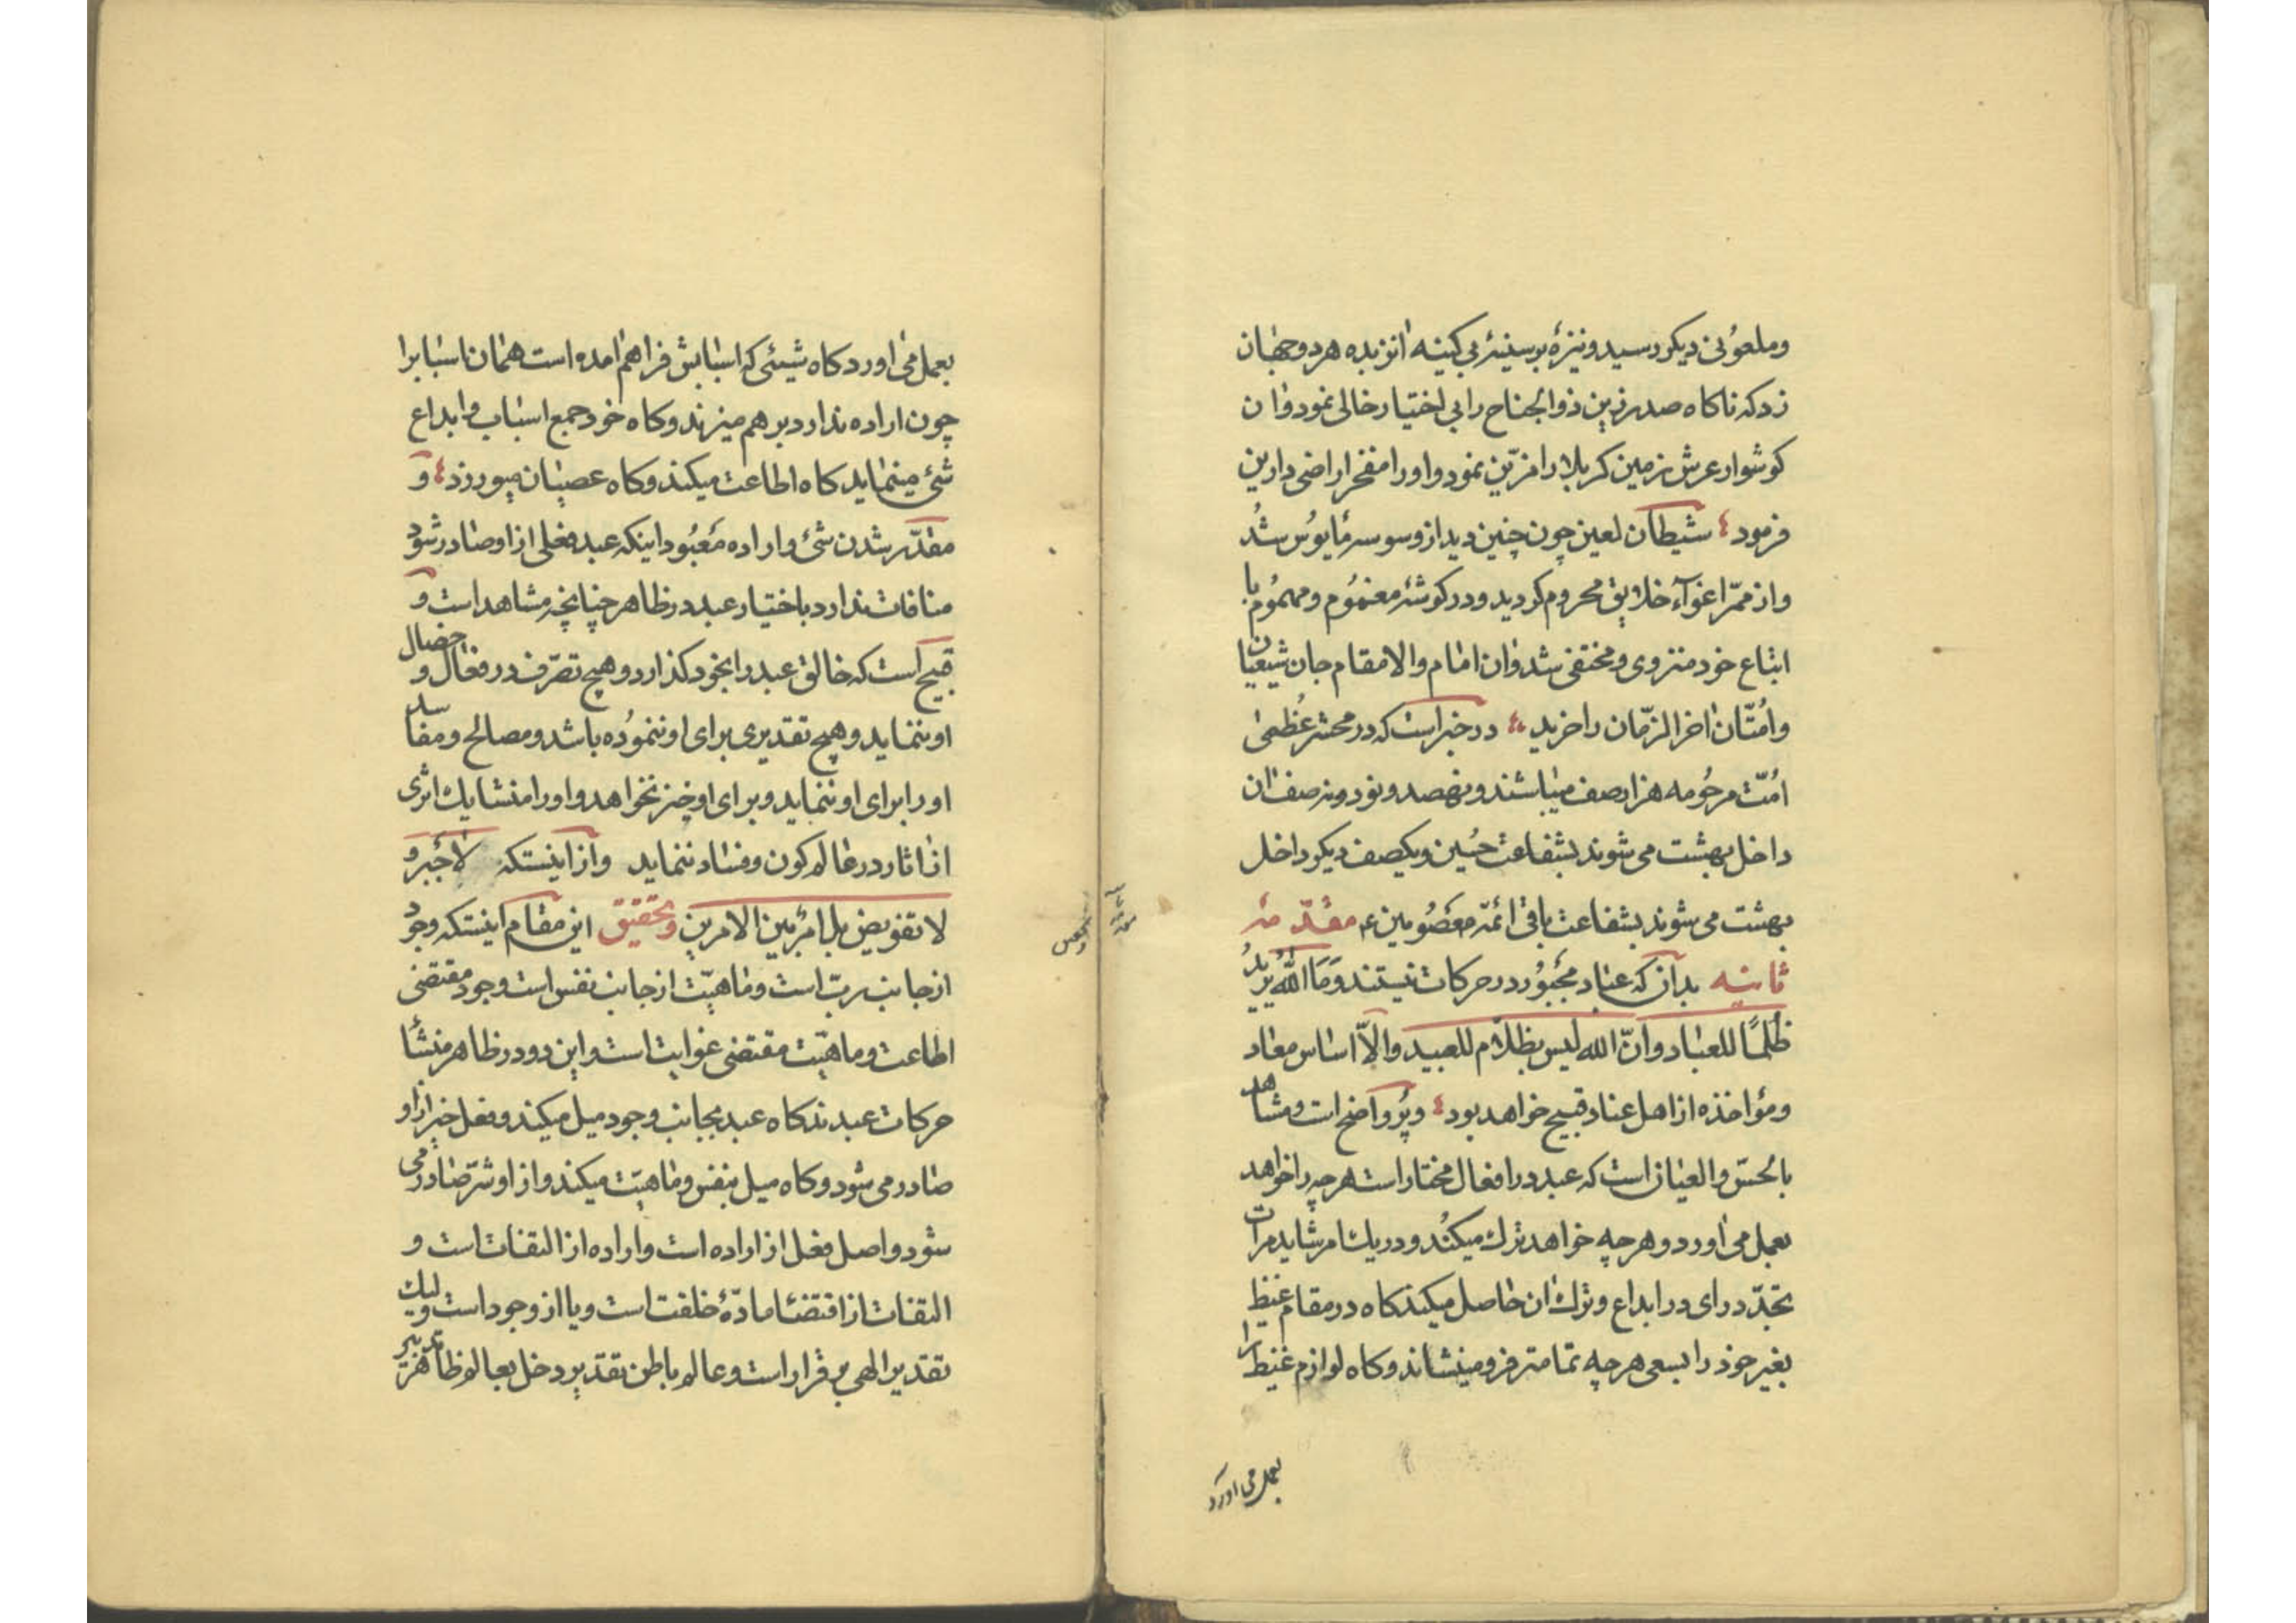 وملعونی دیکر رسید ونیزهٔ بر سینهٔ بی کینه انزبده هر دو جهان
زد که ناکاه صدر زین ذوالجناح را بی اختیار خالی نمود وان
کوشوار عرش زمین کربلا را مزیّن نمود واو را مفخر اراضی دارین
فرمود شیطان لعین چون چنین دید از وسوسه مایوس شد
واز ممرّ اغوآء خلایق محروم کردید ودر کوشهٔ مغموم ومهموم با
اتباع خود منزوی ومختفی شد وان امام والامقام جان شیعیان
وامّتان اخر الزّمان را خرید در خبر است که در محشر عُظمیٰ
امّت مرحُومه هزار صف میباشند ونهصد ونود ونه صف ان
داخل بهشت می شوند بشفاعت حُسین ویکصف دیکر داخل
بهشت می شوند بشفاعت باقی ائمّه معصُومین ء مقدّمهٔ
ثانیه بدان که عباد مجبُور در حرکات نیستند وَمَا اللّهُ یُرِیدُ
ظُلمًا للعباد وانّ الله لیس بظلّام للعبید والّا اساس معاد
ومؤاخذه از اهل عناد قبیح خواهد بود وپُر واضح است ومشاهد
بالحسّ والعیان است که عبد در افعال مختار است هرچه را خواهد
بعمل می اورد وهر چه خواهد ترك میکند ودر یك امر شاید مرات
تجدّد رای در ابداع وترك ان حاصل میکند کاه در مقام غیظ
بغیر خود را بسعی هر چه تمامتر فرو مینشاند وکاه لوازم غیظ را
بعمل می اورد
بعمل می اورد کاه شیئی که اسبابش فراهم امده است همان اسبابرا
چون اراده ندارد بر هم میزند وکاه خود جمع اسباب وابداع
شئ مینماید کاه اطاعت میکند وکاه عصیان میورزد و
مقدّر شدن شئ واراده معبُود اینکه عبد فعلی از او صادر شود
منافات ندارد باختیار عبد در ظاهر چنانچه مشاهد است و
قبیح است که خالق عبد را بخود کذارد وهیچ تصرّف در فعال و خصال
او ننماید وهیچ تقدیری برای او ننموُده باشد ومصالح ومفاسد
او را برای او ننماید وبرای او خیر نخواهد واو را منشا یك اثری
از اثار در عالم کون وفساد ننماید واز اینستکه لاجَبر و
لا تفویض بل امرٌ بین الامرین وتحقیق این مقام اینستکه وجود
از جانب ربّ است وماهیّت از جانب نفس است وجود مقتضی
اطاعت وماهیّت مقتضی غوایت است واین دو در ظاهر منشأ
حرکات عبدند کاه عبد بجانب وجود میل میکند وفعل خیر از او
صادر می شود وکاه میل بنفس وماهیّت میکند واز او شرّ صادر می
شود واصل فعل از اراده است واراده از التفات است و
التفات از اقتضاء مادّهٔ خلقت است ویا از وجود است ولیك
تقدیر الهی بر قرار است وعالم باطن تقدیر دخل بعالم ظاهر تدبیر